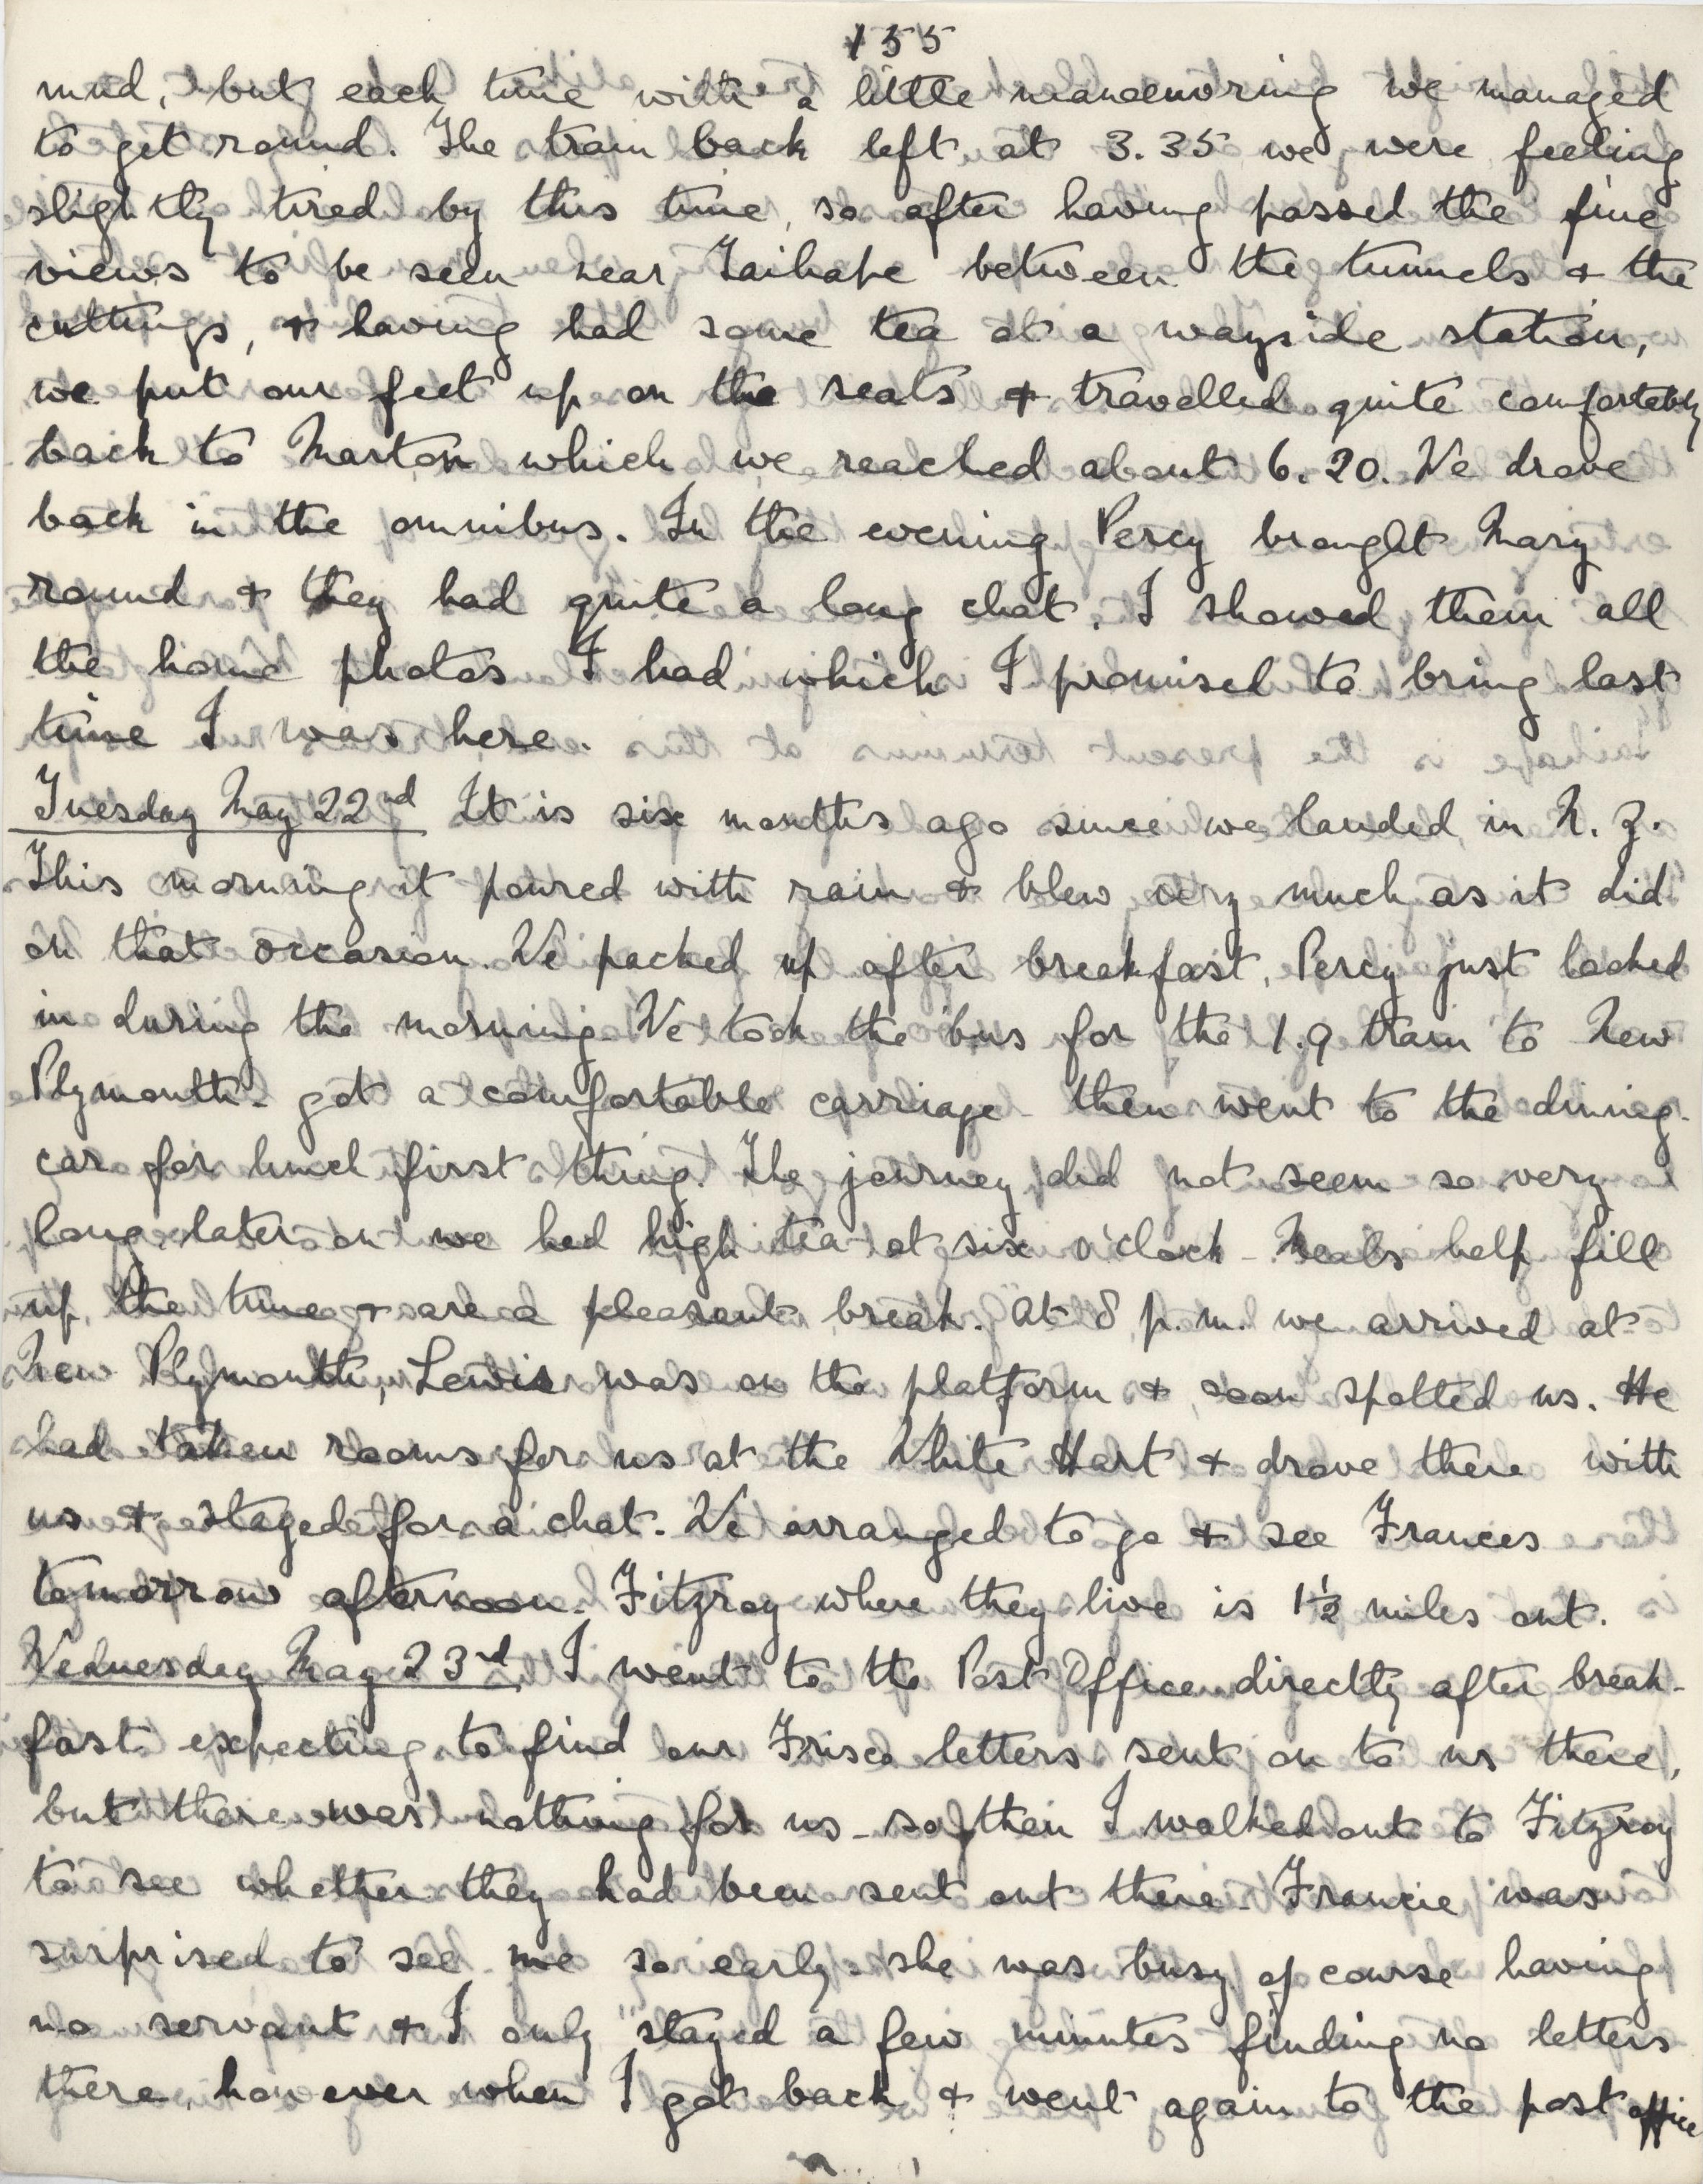 155
mud, but each time with a little manoeuvring we managed
to get round. The train back left at 3.35 we were feeling
slightly tired by this time, so after having passed the fine
views to be seen near Taihape between the tunnels & the
cuttings, & having had some tea at a wayside station,
we put our feet up on the seats & travelled quite comfortably
back to Marton which we reached about 6.20. We drove
back in the omnibus. In the evening Percy brought Mary
round & they had quite a long chat. I showed them all
the home photos I had which I promised to bring last
time I was here.
Tuesday May 22nd It is six months ago since we landed in N.Z.
This morning it poured with rain & blew very much as it did
on that occasion. We packed up after breakfast, Percy just looked
in during the morning. We took the 'bus for the 1.9 train to New
Plymouth - got a comfortable carriage - then went to the dining-
car for lunch first thing. The journey did not seem so very
long, later on we had high tea at six o'clock - Meals help fill
up the time & are a pleasant break. At 8 p.m. we arrived at
New Plymouth, Lewis was on the platform & soon spotted us. He
had taken rooms for us at the White Hart & drove there with
us & stayed for a chat. We arranged to go & see Frances
tomorrow afternoon. Fitzroy where they live is 1½ miles out.
Wednesday May 23rd I went to the Post Office directly after break-
fast expecting to find our Frisco letters sent on to us there,
but there was nothing for us - so then I walked out to Fitzroy
to see whether they had been sent out there. Francie was
surprised to see me so early - she was busy of course having
no servant & I only stayed a few minutes finding no letters
there, however when I got back & went again to the post office